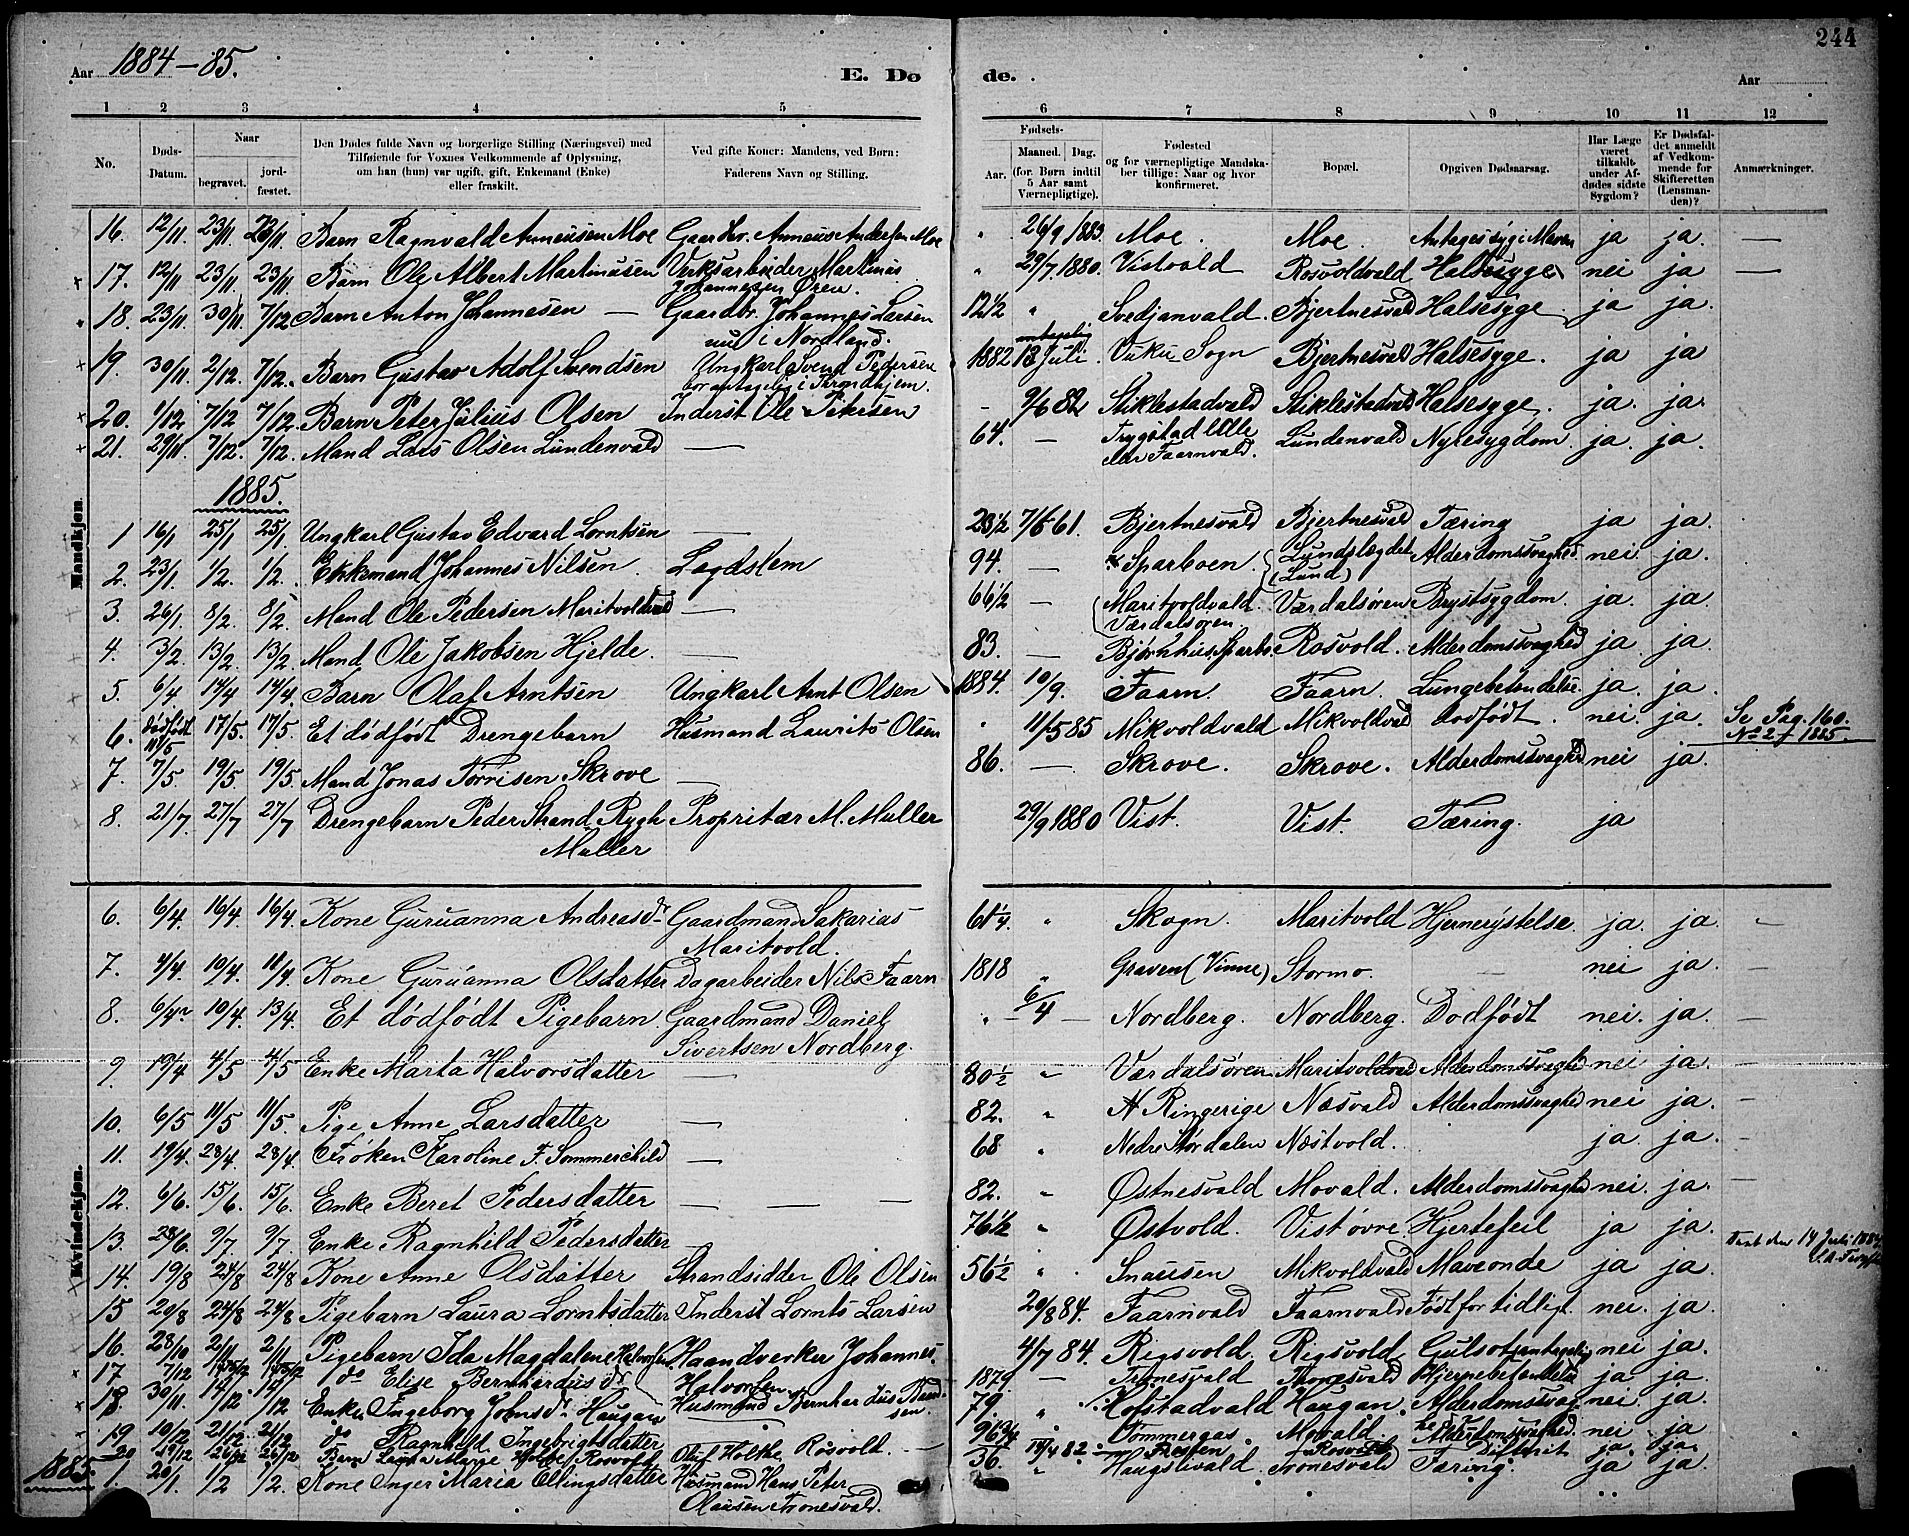 244
Aar 1884-85. E. Dø de. Aar
1 2 3 4 5 6 7 8 9 10 11 12
No. Døds-Datum. Naar begravet. jordfæstet. Den Dødes fulde Navn og borgerlige Stilling (Næringsvei) med Tilføiende for Voxnes Vedkommende af Oplysning, om han (hun) var ugift, gift, Enkemand (Enke) eller fraskilt. Ved gifte Koner: Mandens, ved Børn: Faderens Navn og Stilling. Fødsels- Aar. Maaned. Dag. (for. Børn indtil 5 Aar samt Værnepligtige). Fødested og for værnepligtige Mandskaber tillige: Naar og hvor konfirmeret. Bopæl. Opgiven Dødsaarsag. Har Læge været tilkaldt under Afdødes sidste Sygdom? Er Dødsfaldet anmeldt af Vedkommende for Skifteretten (Lensmanden)? Anmærkninger.
Mandkjøn.
16. 12/11 23/11 23/11 Barn Ragnvald Anneusen Moe Gaardbr. Anneus Andersen Moe " 26/9 1883. Moe. Moe. Antages syg i Maven ja ja. —
17. 12/11 23/11 23/11 Barn Ole Albert Martinusen Verksarbeider Martinus Johannesen Øren. " 29/7 1880. Vistvald Rosvoldvald Halsesyge nei ja —
18. 23/11 30/11 7/12 Barn Anton Johannesen — Gaardbr. Johannes Larsen nu i Nordland. 12 1/2 " Svedjanvald. Bjertnesvald Halsesyge ja ja.
19. 30/11 2/12. 7/12. Barn Gustav Adolf Svendsen Ungkarl Svend Pedersen bor antagelig i Trondhjem. 1882 antagelig 13 Juli. Vuku Sogn Bjertnesvald Halsesyge. ja ja
20. 1/12 7/12 7/12. Barn Peter Julius Olsen Inderst Ole Petersen - 9/6 82 Stiklestadvald Stiklestadvald Halsesyge. ja. ja.
21. 29/11. 7/12. 7/12. Mand Lars Olsen Lundenvald — 64. — Trygstad eller Faarnvald. Lundenvald Nyresygdom. ja. ja.
1885.
1 16/1 25/1 25/1 Ungkarl Gustav Edvard Lorntsen — 23 1/2 7/6 61. Bjertnesvald Bjertnesvald Tæring ja ja.
2. 23/1. 1/2. 1/2. Enkemand Johannes Nilsen. Legdslem 94. — Sparboen. Lundslegdet (Lund) Alderdomssvaghed nei ja.
3. 26/1 8/2. 8/2. Mand Ole Pedersen Maritvoldvald — 66 1/2 — Maritvoldvald Værdalsøren. Værdalsøren Brystsygdom. ja. ja.
4. 3/2. 13/2 13/2 Mand Ole Jakobsen Hjelde. — 83. — Bjørnhus, Sparbo. Rosvold. Alderdomssvaghed ja ja.
5. 6/4 14/4 14/4. Barn Olaf Arntsen Ungkarl Arnt Olsen 1884. 10/9. Faarn. Faarn. Lungebetændelse. ja. ja.
6. dødfødt 11/5 17/5. 17/5. Et dødfødt Drengebarn Husmand Laurits Olsen " 11/5 85 Mikvoldvald Mikvoldvald Dødfødt. nei. ja. Se Pag. 160. No 27 1885.
7. 7/5 19/5 19/5 Mand Jonas Tørrisen Skrove — 86. — Skrove. Skrove. Alderdomssvaghed nei ja.
8. 21/7. 27/7 27/7 Drengebarn Peder Strand Rygh Müller Propritær M. Müller 29/9 1880 Vist. Vist. Tæring. ja
Kvindekjøn.
6. 6/4. 16/4 16/4. Kone Guruanna Andreasdr. Gaardmand Sakarias Maritvold. 61 1/4 " Skogn. Maritvold Hjernerystelse ja. ja. —
7. 4/4. 10/4. 11/4 Kone Guruanna Olsdatter Dagarbeider Nils Faarn 1818 " Graven (Vinne) Stormo. — nei ja. —
8. 6/4 10/4. 13/4. Et dødfødt Pigebarn. Gaardmand Daniel Sivertsen Nordberg. " 6/4 — Nordberg. Nordberg. Dødfødt nei. ja. —
9. 19/4 4/5 4/5 Enke Marta Halvorsdatter — 80 1/2 " Værdalsøren Maritvoldvald Alderdomssvaghed nei ja. —
10. 6/5 11/5 11/5. Pige Anne Larsdatter — 82. " Ringerige Næsvald Alderdomssvaghed nei ja. —
11. 19/4. 23/4. 23/4. Frøken Karoline F. Sommerschild — 68 " Nedre Størdalen Næstvold. ja ja. —
12. 6/6. 15/6. 15/6. Enke Beret Pedersdatter — — 82. " Østnesvald Movald. Alderdomssvaghed nei. ja. —
13. 28/6. 9/7 9/7. Enke Ragnhild Pedersdatter — 76 1/2 " Østvold. Vist øvre Hjertefeil ja ja. Test den 14 Juli 1884
14. 19/8 24/8 24/8 Kone Anne Olsdatter Strandsidder Ole Olsen 56 1/2 " Snausen Mikvoldvald Maveonde ja ja.
15 20/8 24/8 24/8 Pigebarn Laura Lorntsdatter Inderst Lornts Larsen 20/8 84. Faarnvald Faarnvald Født for tidligt. nei. ja.
16. 28/10 2/11 2/11 Pigebarn Ida Magdalene Halvorsen Haandverker Johannes Halvorsen 4/7 84. Rigsvold Rigsvold Gulsot (antagelig nei ja.
17 7/12 do Elise Bernhardusdr. Husmand Bernhardus 1879 — Tronesvald Tronesvald Hjernebetændelse ja ja.
18. 30/11. 14/12 14/12 Enke Ingeborg Johnsd. Haugan 79 " Hofstadvald Haugan. Alderdomssvag. nei. ja.
19 10/12 21/12 21/12 do Ragnhild Ingebrigtsdatter — 96 3/4 " Tommeraas. Movald. Alderdomssvaghed. nei ja
20 19/12 26/12 26/12 Barn Laura Marie Holthe Rosvold Oluf Holthe Rosvold 14/4 82. Rosvold Difterit ja. ja.
1885. 1. 20/1. 1/2 1/2. Kone Inger Maria Ellingsdatter Husmand Hans Peter Olausen Tronesvald. 56. " Haugslivald Tronesvald Tæring. ja ja.